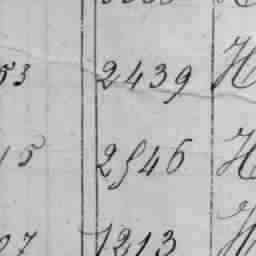 53 2439 H
15 2546 H
07 1213 H